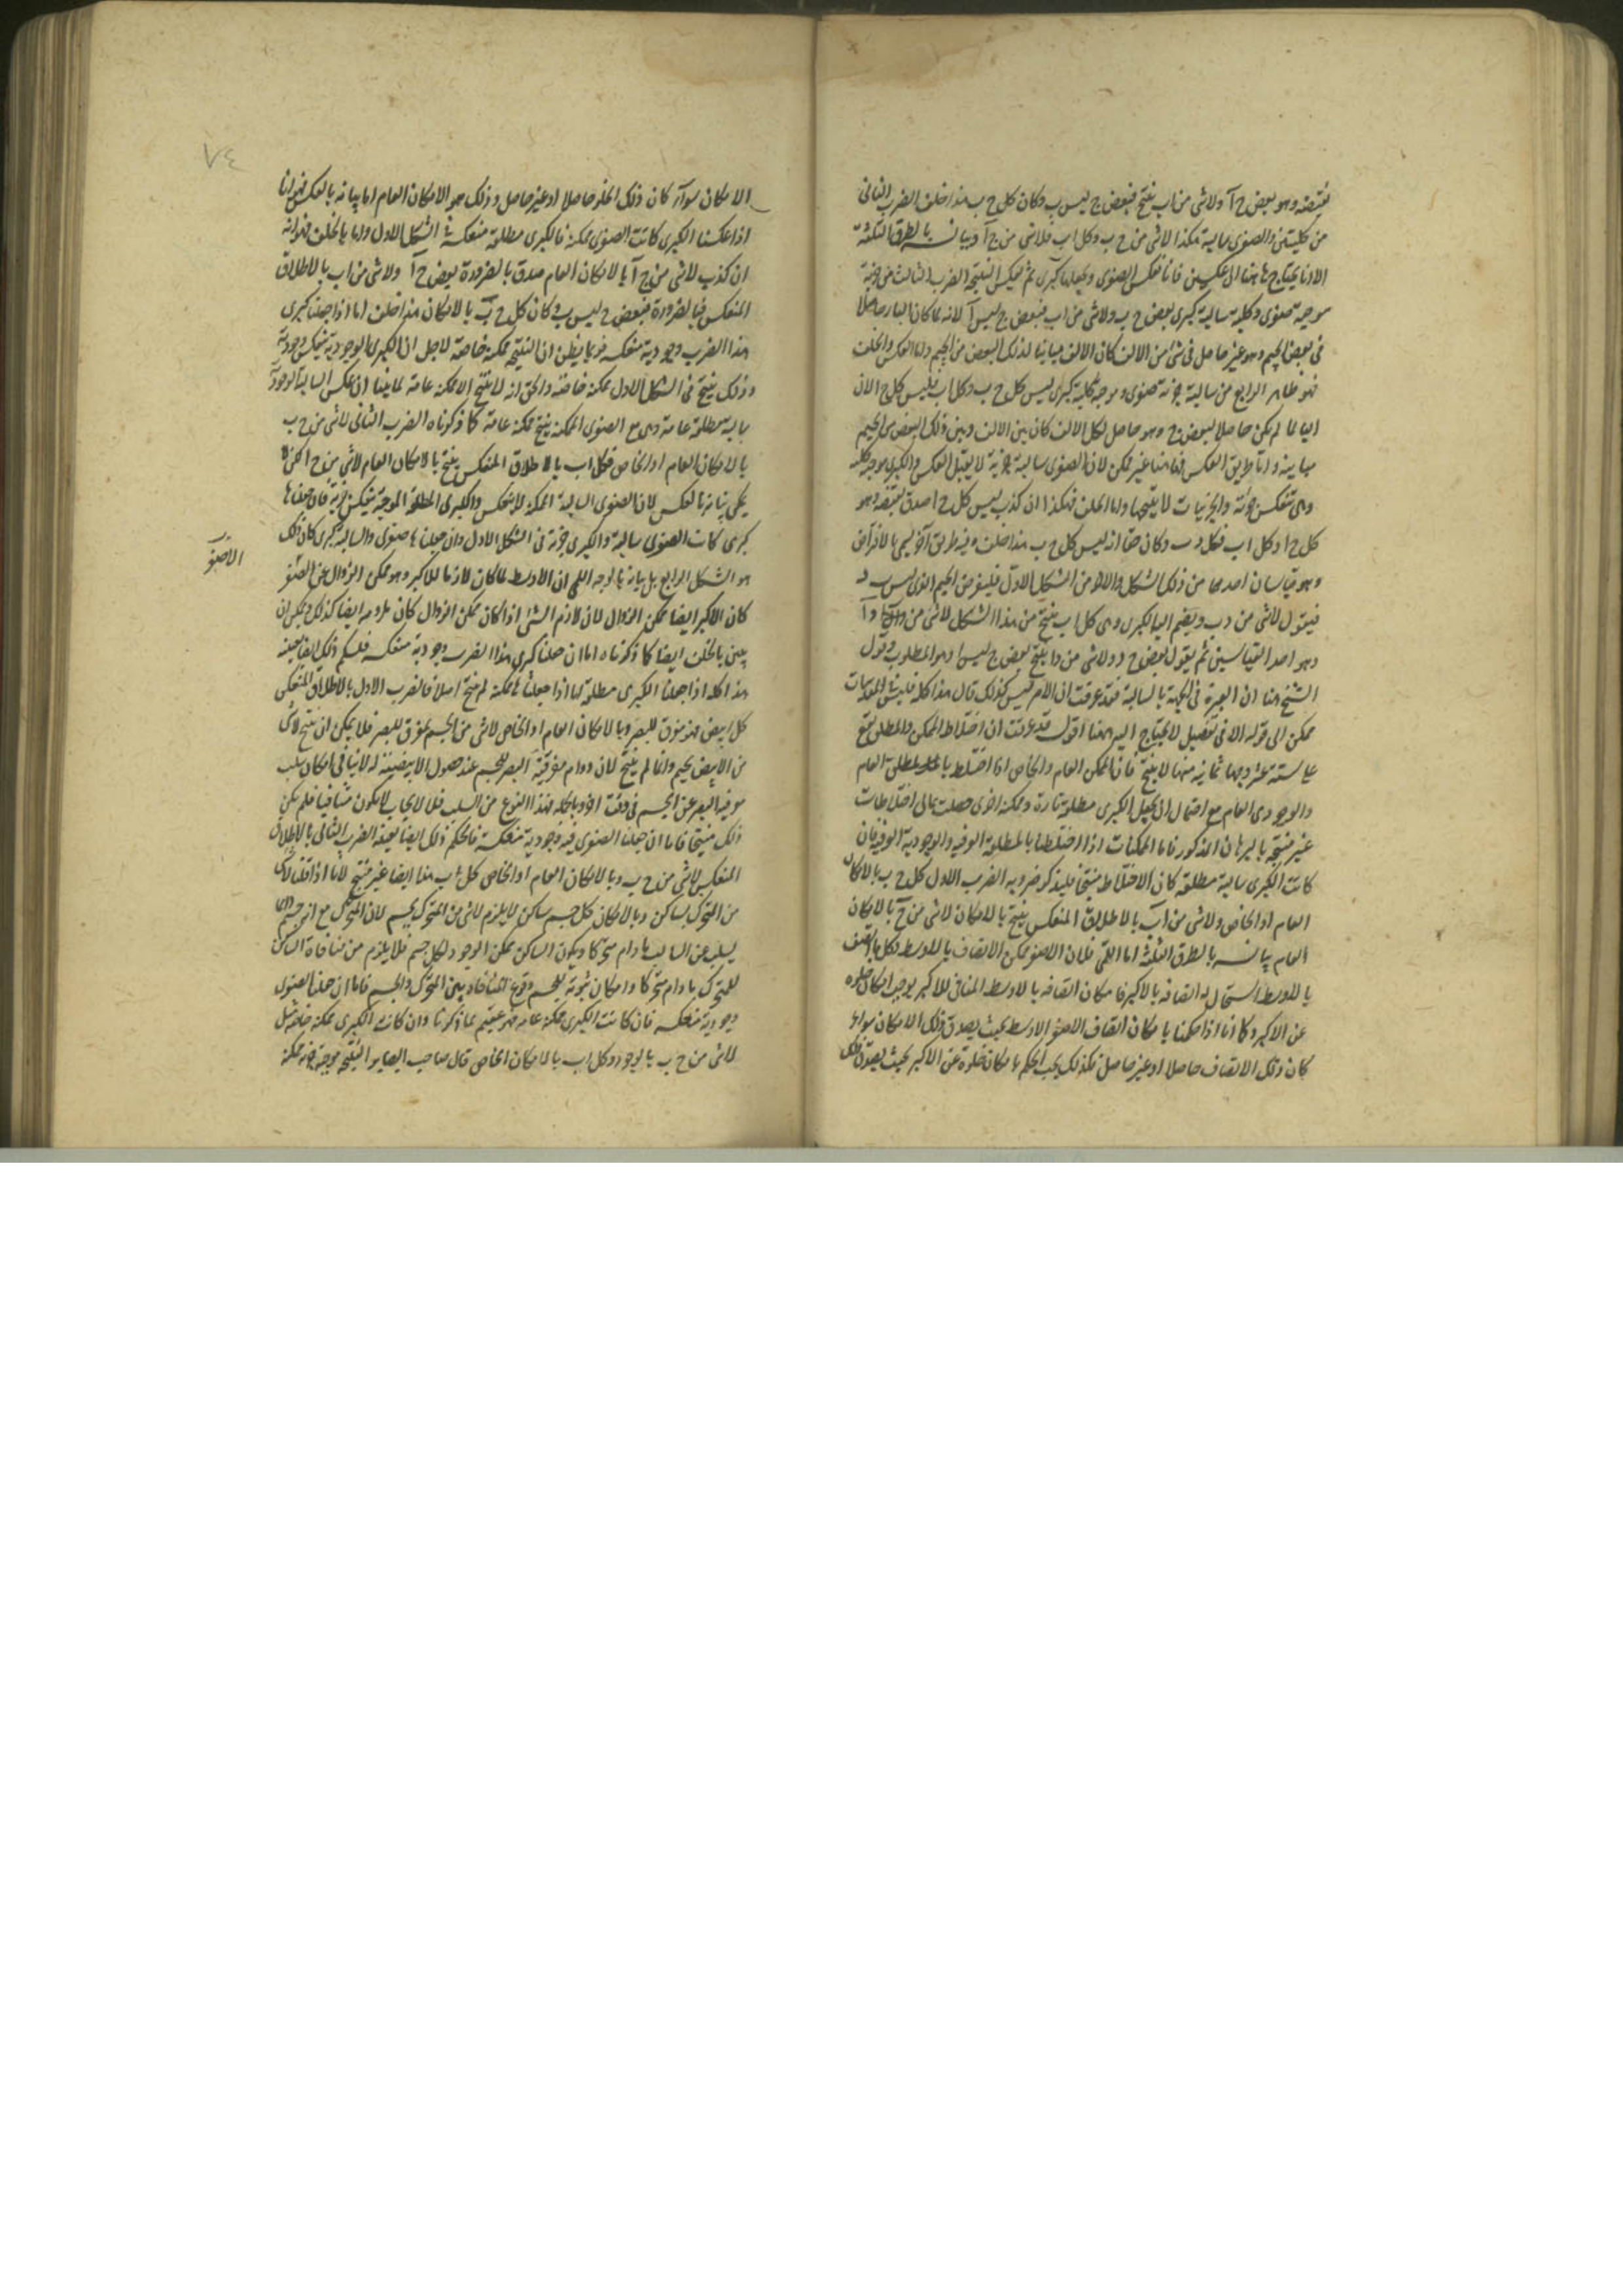 نقيضه وهو بعض ج آ ولاشى من اب ينتج فبعض ج ليس ب وكان كل ج ب هذا خلف الضرب الثانى
من كليتين والصغرى سالبة هكذا لاشى من ج ب وكل اب فلاشى من ج آ وبيانه بالطرق الثلثة
الا انا نحتاج هاهنا الى عكسين فانا نعكس الصغرى ونجعلها كبرى ثم نعكس النتيجة الضرب الثالث من جزئية
موجبة صغرى وكلية سالبة كبرى بعض ج ب ولاشى من اب فبعض ج ليس آ لانه لما كان الباء حاصلا
فى بعض الجيم وهو غير حاصل فى شئ من الالف كان الالف مباينا لذلك البعض من الجيم واما العكس والخلف
فهو ظاهر الرابع من سالبة جزئية صغرى وموجبة كلية كبرى ليس كل ج ب وكل اب فليس كل ج ا لان
الباء لما لم يكن حاصلا لبعض ج وهو حاصل لكل الالف كان بين الالف وبين ذلك البعض من الجيم
مباينة واما طريق العكس فهاهنا غير ممكن لان الصغرى سالبة جزئية لا يقبل العكس والكبرى موجبة كلية
وهى تنعكس جزئية والجزئيات لا ينتجها واما الخلف فهكذا ان كذب ليس كل ج ا صدق نقيضه وهو
كل ج ا وكل اب فكل ج ب وكان حقا انه ليس كل ج ب هذا خلف وفيه طريق آخر يسمى بالافتراض
وهو قياسان احدهما من ذلك الشكل والآخر من الشكل الاول فليفرض الجيم الذى ليس ب د
فيقول لاشى من د ب ويضم اليها الكبرى وهى كل اب ينتج من هذا الشكل لاشى من د ا
وهو احد القياسين ثم يقول بعض ج د ولاشى من د ا ينتج بعض ج ليس ا وهو المطلوب وقول
الشيخ هنا ان العبرة فى الجهة بالسالبة فقد عرفت ان الامر ليس كذلك قال هذا كله فليس المقدمات
ممكن الى قوله الا فى تفصيل لا يحتاج اليه هاهنا اقول قد عرفت ان اختلاط الممكن والمطلق يقع
على ستة عشر وجها ثمانية منها لا ينتج فان الممكن العام والخاص اذا اختلط بالمطلق العام
والوجودى العام مع احتمال ان يجعل الكبرى مطلقة تارة وممكنة اخرى حصلت ثمانى اختلاطات
غير منتجة بالبرهان المذكور فاما الممكنات اذا اختلطا بالمطلقة العرفية والوجودية العرفية فان
كانت الكبرى سالبة مطلقة كان الاختلاط منتجا فليذكر ضروبه الضرب الاول كل ج ب بالامكان
العام او الخاص ولاشى من آب بالاطلاق المنعكس ينتج بالامكان لاشى من ج آ بالامكان
العام بيانه بالطرق الثلثة اما اللمى فلان الاصغر ممكن الاتصاف بالاوسط وكل ما اتصف
بالاوسط استحال له اتصافه بالاكبر فامكان اتصافه بالاوسط المنافى للاكبر يوجب امكان خلوه
عن الاكبر وكما انا اذا حكمنا بامكان اتصاف الاصغر الاوسط بحيث يصدق ذلك الامكان سواء
كان ذلك الاتصاف حاصلا او غير حاصل فكذلك يجب الحكم بامكان خلوه عن الاكبر بحيث يصدق ذلك
٧٤
الامكان سوآء كان ذلك الخلو حاصلا او غير حاصل وذلك هو الامكان العام اما بيانه بالعكس فهو انا
اذا عكسنا الكبرى كانت الصغرى ممكنة فالكبرى مطلقة منعكسة فى الشكل الاول واما بالخلف فهو انه
ان كذب لاشى من ج آ بالامكان العام صدق بالضرورة بعض ج آ ولاشى من اب بالاطلاق
المنعكس فبالضرورة فبعض ج ليس ب وكان كل ج ب بالامكان هذا خلف اما اذا جعلنا كبرى
هذا الضرب وجودية منعكسة فربما يظن ان النتيجة ممكنة خاصة لاجل ان الكبرى الوجودية ينعكس وجودية
وذلك ينتج فى الشكل الاول ممكنة خاصة والحق انه لا ينتج الا ممكنة عامة لما بينا ان عكس السالبة الوجودية
سالبة مطلقة عامة وهى مع الصغرى الممكنة ينتج ممكنة عامة كما ذكرناه الضرب الثانى لاشى من ج ب
بالامكان العام او الخاص فكل اب بالاطلاق المنعكس ينتج بالامكان العام لاشى من ج ا لكن لا
يمكن بيانه بالعكس لان الصغرى السالبة الممكنة لا ينعكس والكبرى المطلقة الموجبة ينعكس جزئية فان جعلناها
كبرى كانت الصغرى سالبة والكبرى جزئية فى الشكل الاول وان جعلناها صغرى والسالبة كبرى كان ذلك
هو الشكل الرابع بل بيانه بالوجه اللمى ان الاوسط لما كان لازما للاكبر وهو ممكن الزوال عن الاصغر
الاصغر
كان الاكبر ايضا ممكن الزوال لان لازم الشئ اذا كان ممكن الزوال كان ملزومه ايضا كذلك ويمكن ان
يبين بالخلف ايضا كما ذكرناه اما ان جعلنا كبرى هذا الضرب وجودية منعكسة فالحكم ذلك ايضا بعينه
هذا كله اذا جعلنا الكبرى مطلقة اما اذا جعلناها ممكنة لم ينتج اصلا فالضرب الاول بالاطلاق المنعكس
كل ابيض فهو مفرق للبصر وبالامكان العام او الخاص لاشى من الجسم بمفرق للبصر فلا يمكن ان ينتج لاشى
من الابيض بجسم وانما لم ينتج لان دوام مفرقية البصر للجسم عند حصول الابيضية له لا ينافى امكان سلب
مفرقية البصر عن الجسم فى وقت آخر وبالجملة فهذا النوع من السلب فلا لايجاب لا يكون متنافيا فلم يكن
ذلك منتجا فاما ان جعلنا الصغرى فيه وجودية منعكسة فالحكم ذلك ايضا بعينه الضرب الثانى بالاطلاق
المنعكس لاشى من ج ب وبالامكان العام او الخاص كل اب هذا ايضا غير منتج لانا اذا قلنا لاشى
من المتحرك بساكن وبالامكان كل جسم ساكن لا يلزم لاشى من المتحرك بجسم لان المتحرك مع انه جسم
يسلب عنه الساكن مادام متحركا ويكون الساكن ممكن الوجود لكل جسم فلا يلزم من منافاة الساكن
للمتحرك مادام متحركا وامكان ثبوته للجسم وقوع المنافاة بين المتحرك والجسم فاما ان جعلنا الصغرى
وجودية منعكسة فان كانت الكبرى ممكنة عامة فهو عقيم لما ذكرنا وان كانت الكبرى ممكنة خاصة مثل
لاشى من ج ب بالوجود وكل اب بالامكان الخاص قال صاحب البصاير النتيجة موجبة جزئية ممكنة